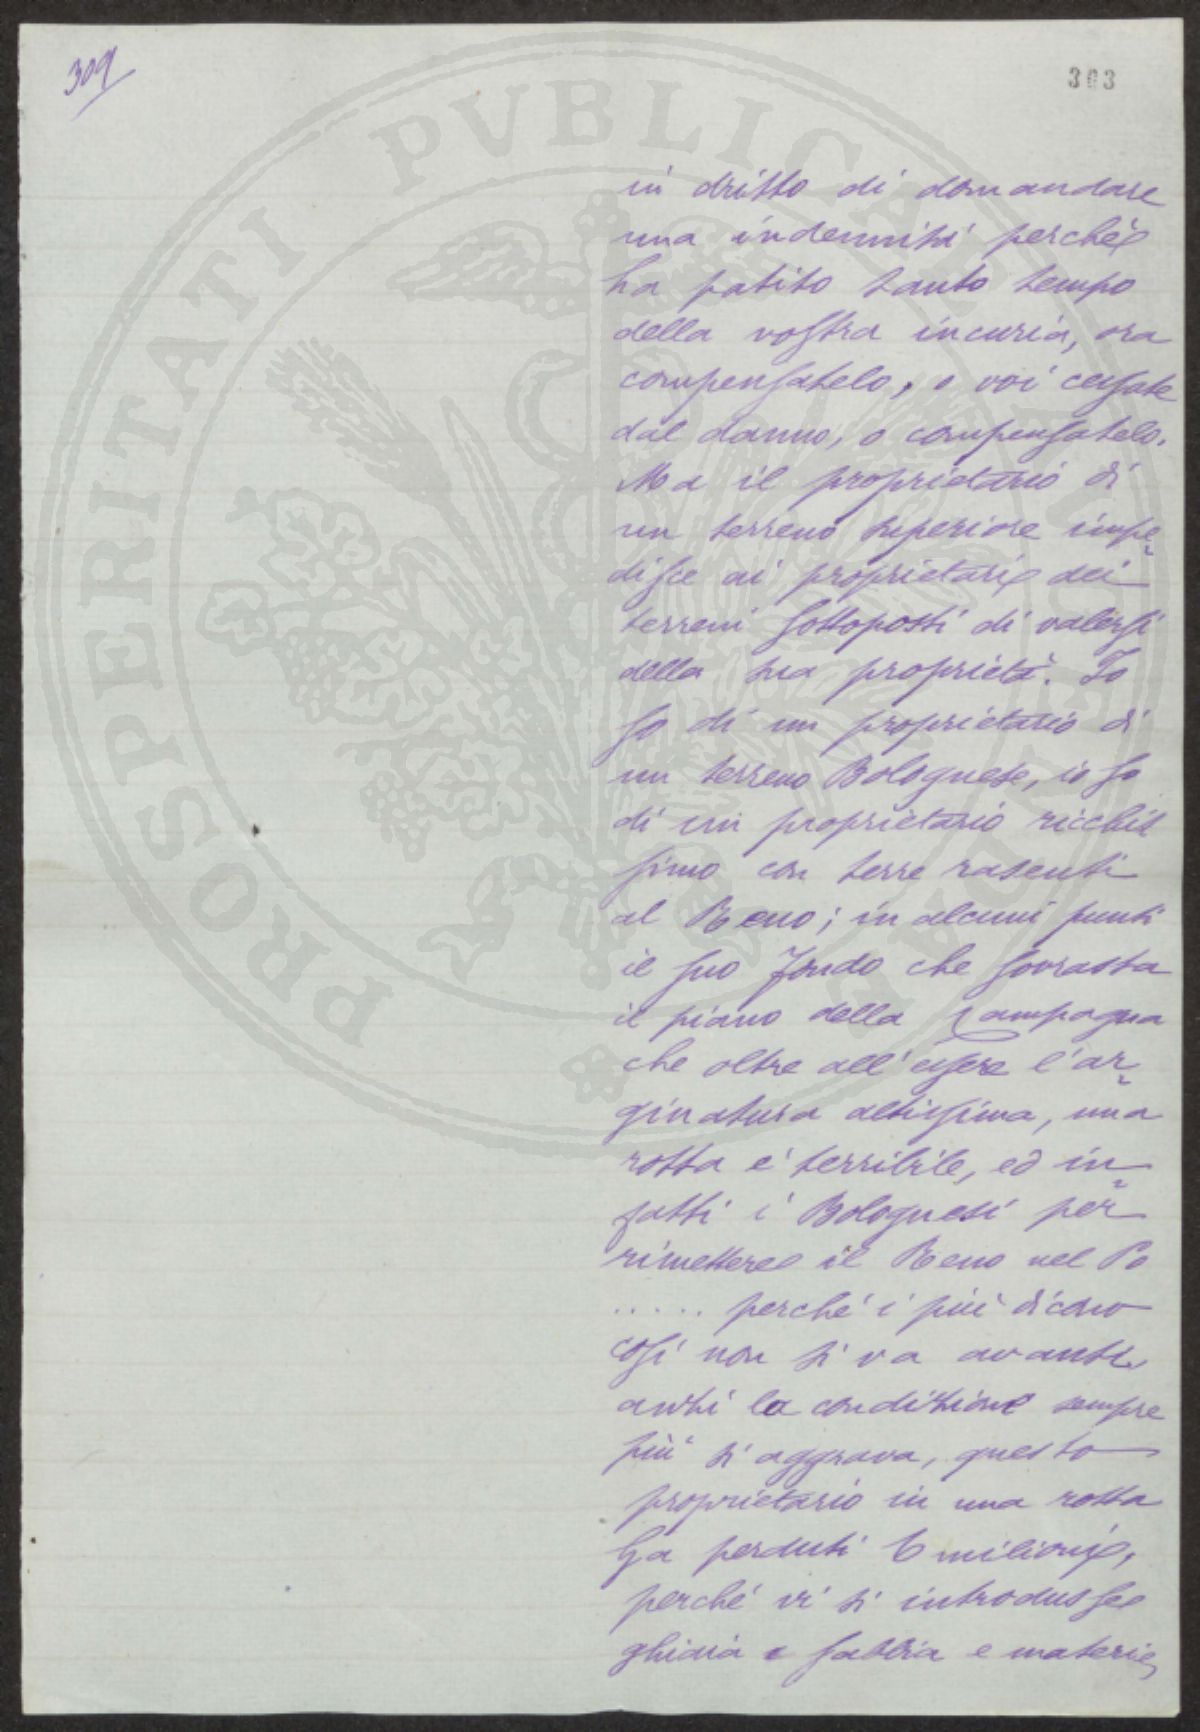 309
303
in dritto di domandare
una indennità perchè
ha patito tanto tempo
della vostra incuria, ora
compensatelo, o voi cessate
dal danno, o compensatelo.
Ma il proprietario di
un terreno superiore impe=
disce ai proprietari dei
terreni sottoposti di valersi
della sua proprietà. Io
so di un proprietario di
un terreno Bolognese, io so
di un proprietario ricchis
simo con terre rasenti
al Reno; in alcuni punti
il suo fondo che sovrasta
il piano della Campagna
che oltre all'essere l'ar=
ginatura altissima, una
rotta è terribile, ed in=
fatti i Bolognesi per
rimettere il Reno nel Po
..... perché i più dicono
così non si va avanti,
anzi la condizione sempre
più si aggrava, questo
proprietario in una rotta
ha perduti 6 milioni,
perché vi si introdusse
ghiaia e sabbia e materie,
PROSPERITATI PVBLICAE